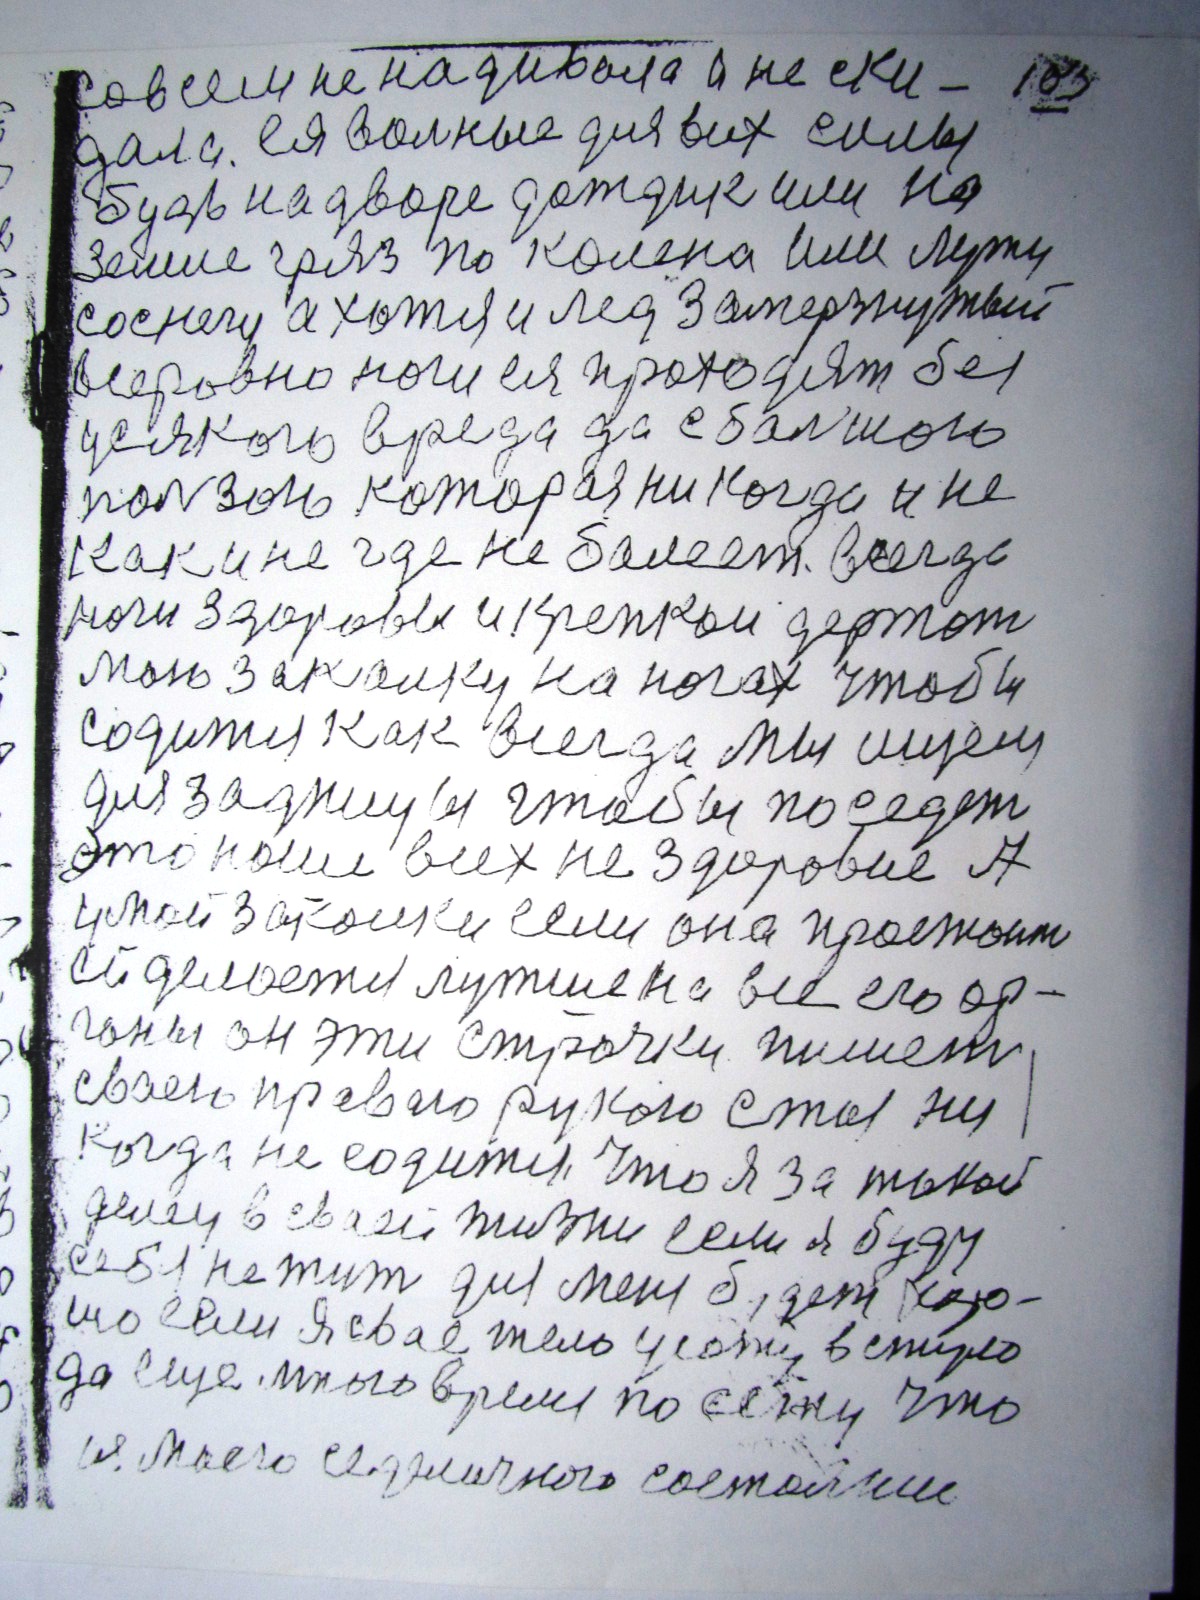 совсем не надивала и не ски- 103
дала. ся волные для вих силы
будь на дворе дождик или на
земле гряз по колена или лужи
соснегу а хотя и лед замерзнутый
всеровно ноги ся проходят без
усякого вреда да с балшою
ползою которая никогда и не
как и не где не балеет. всегда
ноги здоровы и крепкои держат
мою закалку на ногах чтобы
содитися как всегда мы ищем
для задницы чтобы поседет
это наше всех не здоровие А
у мой закалки если она простоит
ей делается лутше на все его ор-
ганы он эти строчки пишет
сваею праваю рукою стоя ни
когда не содится. Что я за такой
делец в сваей жизни если я буду
себя нежит для меня будет хоро-
шо если я свае тело усажу в стуло
да еще много время по сежу что
ся. моего седеличного состояния